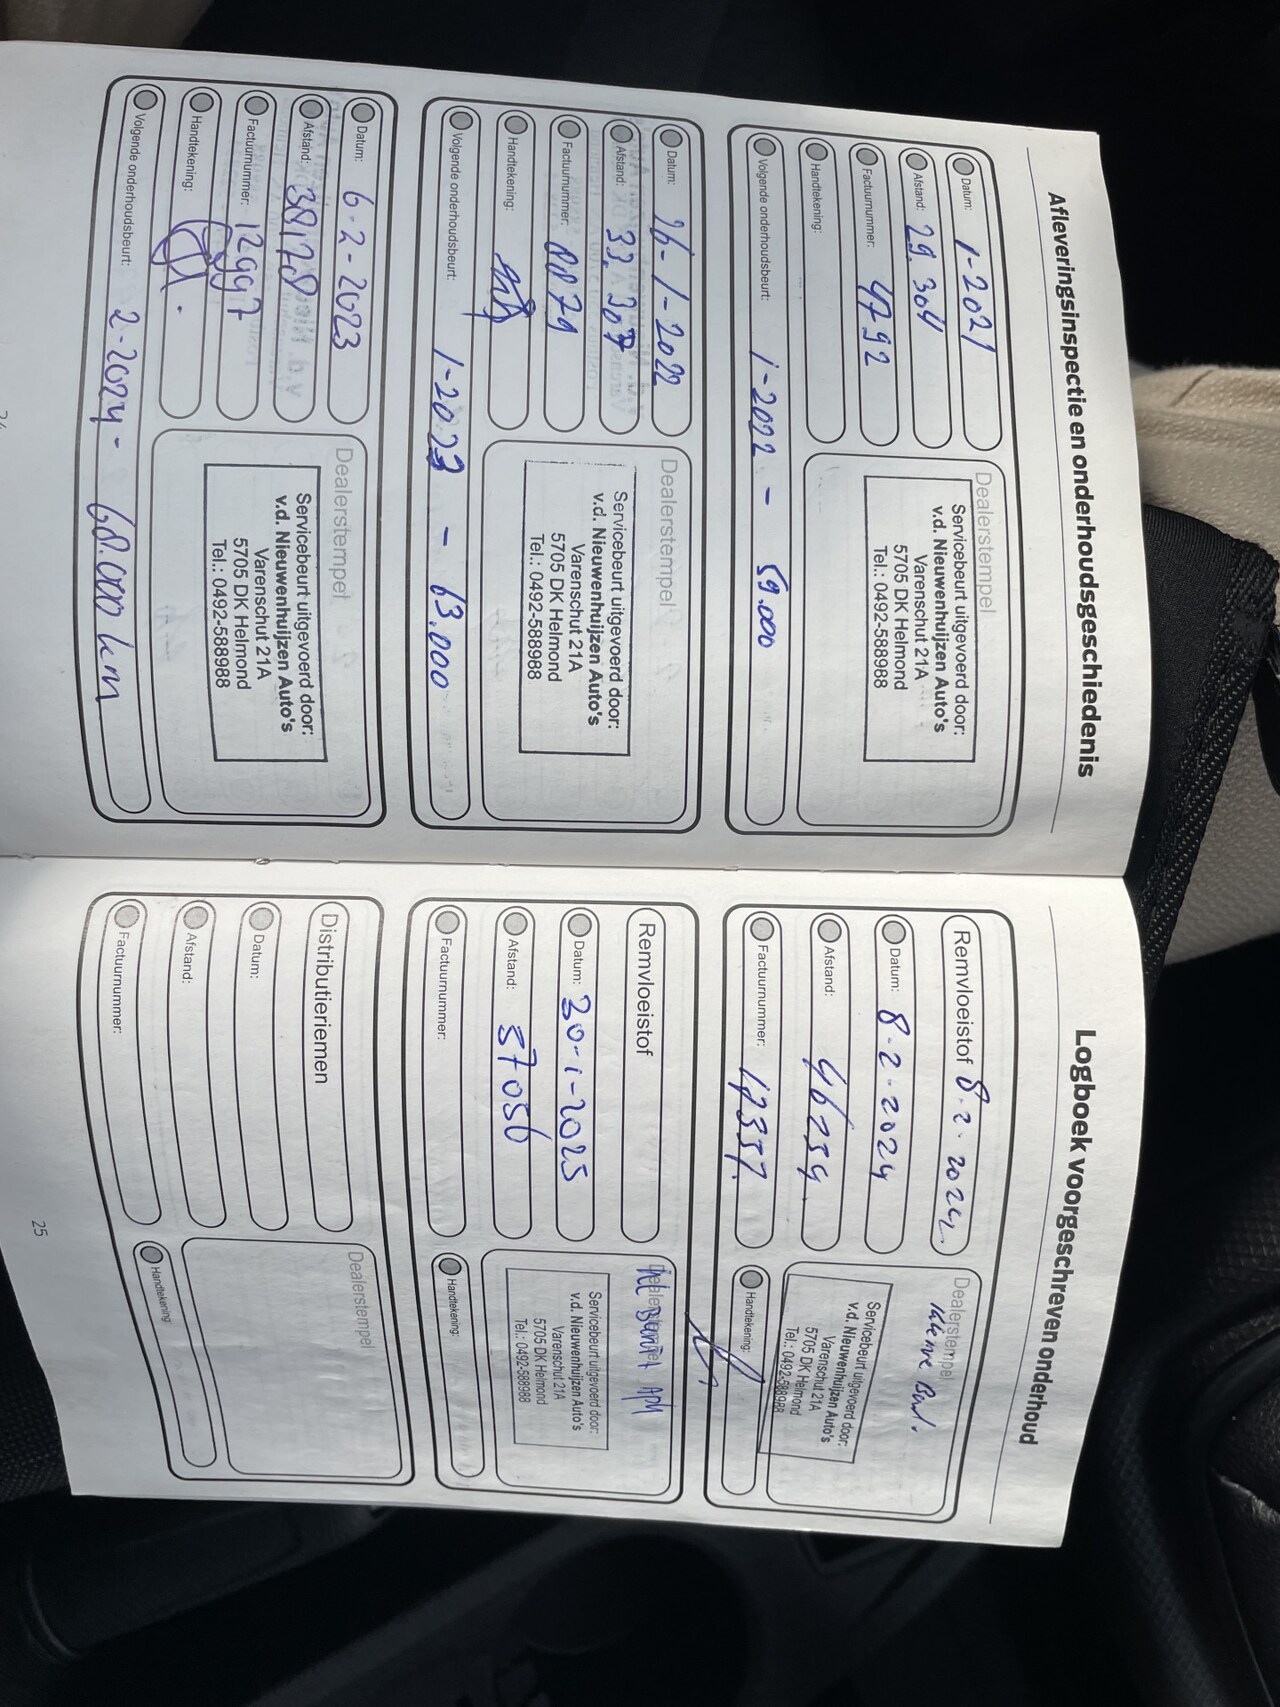 Afleveringsinspectie en onderhoudsgeschiedenis
Datum: 1-2021
Afstand: 29.304
Factuurnummer: 4792
Handtekening:
Dealerstempel
Servicebeurt uitgevoerd door:
v.d. Nieuwenhuijzen Auto's
Varenschut 21A
5705 DK Helmond
Tel.: 0492-588988
Volgende onderhoudsbeurt: 1-2022 - 59.000
Datum: 26-1-2022
Afstand: 33.307
Factuurnummer: 8879
Handtekening:
Dealerstempel
Servicebeurt uitgevoerd door:
v.d. Nieuwenhuijzen Auto's
Varenschut 21A
5705 DK Helmond
Tel.: 0492-588988
Volgende onderhoudsbeurt: 1-2023 - 63.000
Datum: 6-2-2023
Afstand: 38178
Factuurnummer: 12997
Handtekening:
Dealerstempel
Servicebeurt uitgevoerd door:
v.d. Nieuwenhuijzen Auto's
Varenschut 21A
5705 DK Helmond
Tel.: 0492-588988
Volgende onderhoudsbeurt: 2-2024 - 68.000 km
Logboek voorgeschreven onderhoud
Remvloeistof 8.2.2024
Datum: 8.2.2024
Afstand: 46239
Factuurnummer: 17337
Dealerstempel
Servicebeurt uitgevoerd door:
v.d. Nieuwenhuijzen Auto's
Varenschut 21A
5705 DK Helmond
Tel.: 0492-588988
Handtekening:
Remvloeistof
Datum: 30-1-2025
Afstand: 57056
Factuurnummer:
Dealerstempel
Beurt APK
Servicebeurt uitgevoerd door:
v.d. Nieuwenhuijzen Auto's
Varenschut 21A
5705 DK Helmond
Tel.: 0492-588988
Handtekening:
Distributieriemen
Datum:
Afstand:
Factuurnummer:
Dealerstempel
Handtekening:
25